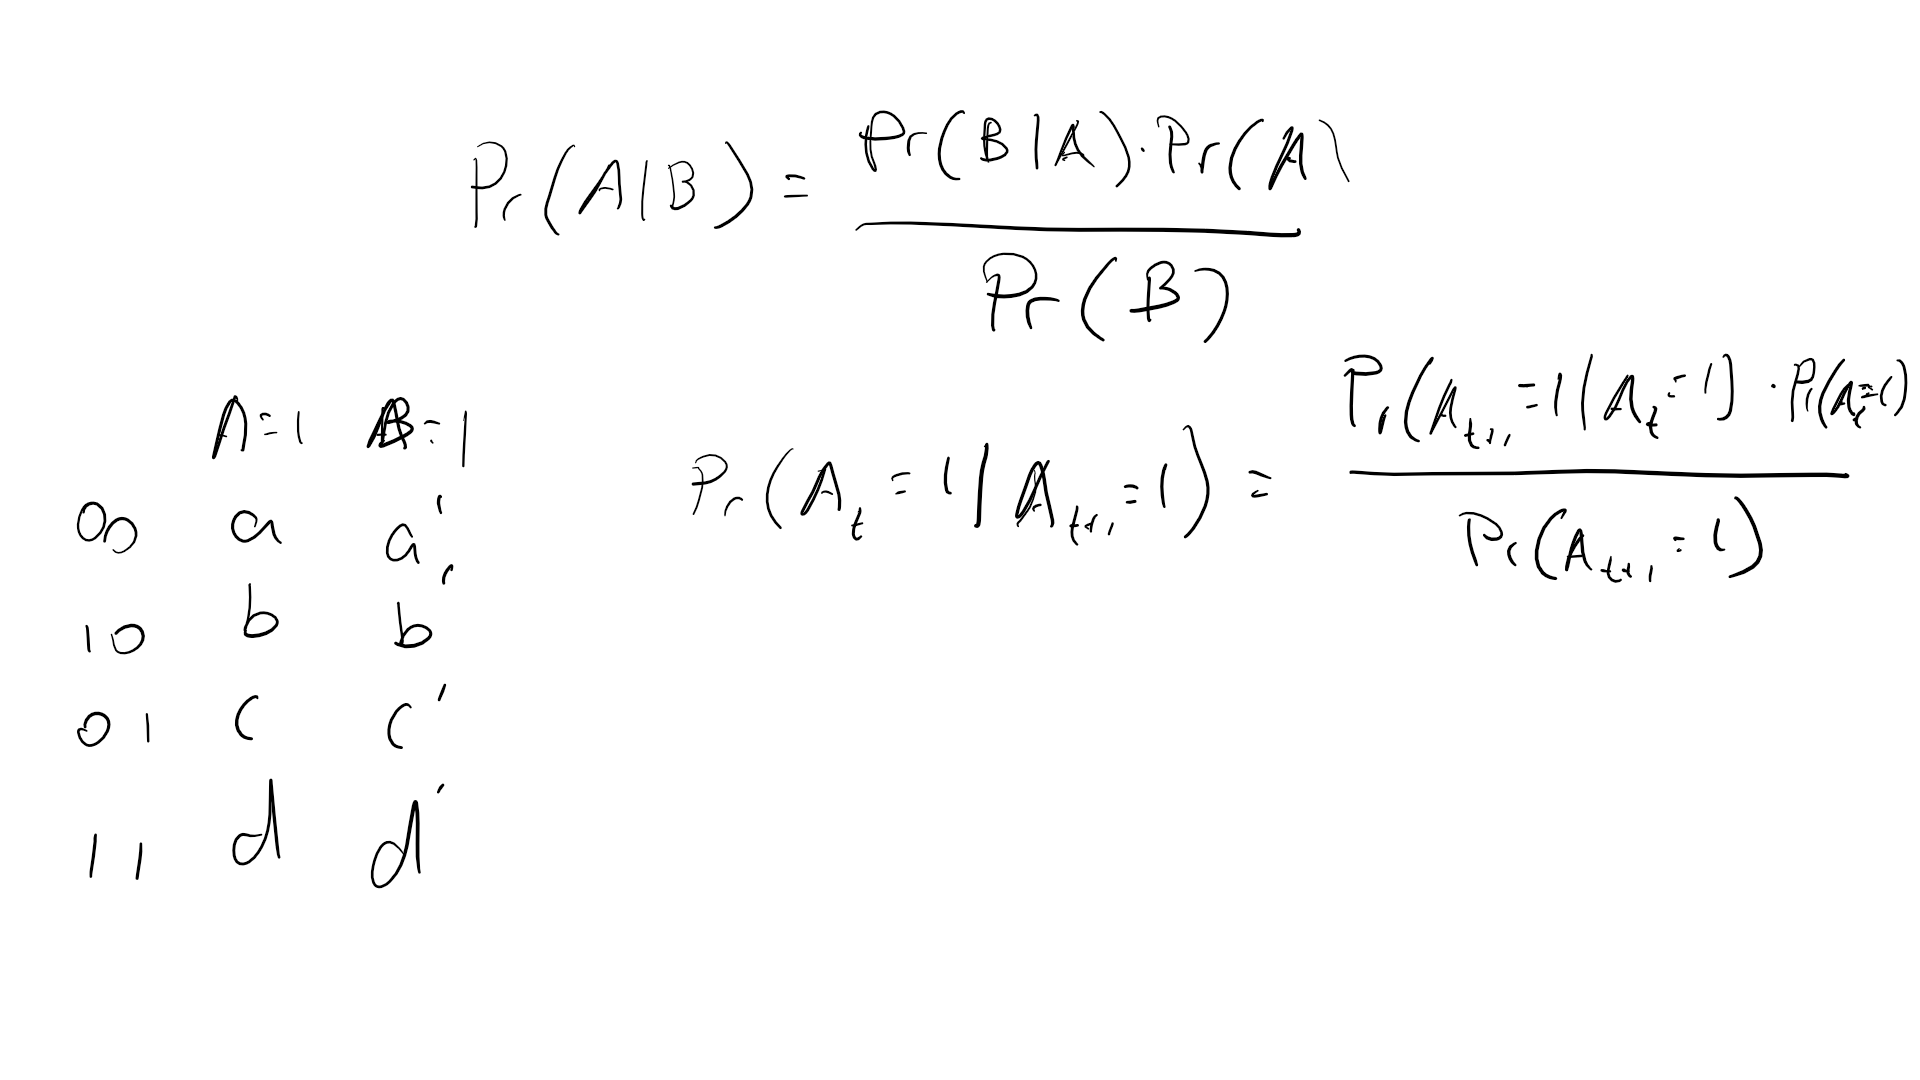 Pr(A|B) = Pr(B|A)·Pr(A)
Pr(B)
A=1 B=1
00 a a'
10 b b'
01 c c'
11 d d'
Pr(A_t=1|A_{t+1}=1) = Pr(A_{t+1}=1|A_t=1)·Pr(A_t=1)
Pr(A_{t+1}=1)